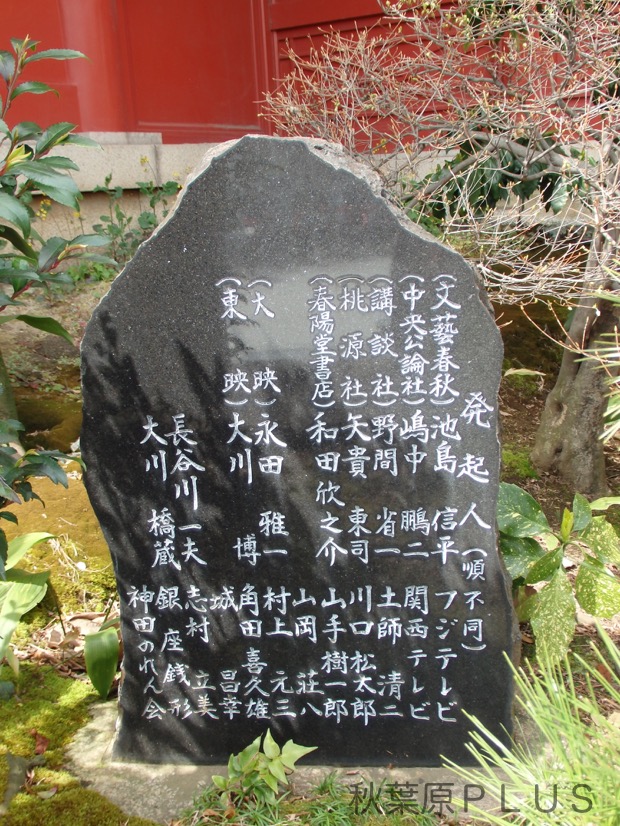 発起人(順不同)
(文藝春秋)池島 信平
(中央公論社)嶋中 鵬二
(講談社)野間 省一
(桃源社)矢貴 東司
(春陽堂書店)和田欣之介
(大映)永田 雅一
(東映)大川 博
長谷川一夫
大川 橋蔵
フジテレビ
関西テレビ
土師 清二
川口松太郎
山手樹一郎
山岡 荘八
村上 元三
角田喜久雄
城 昌幸
志村 立美
銀座銭形
神田のれん会
秋葉原PLUS